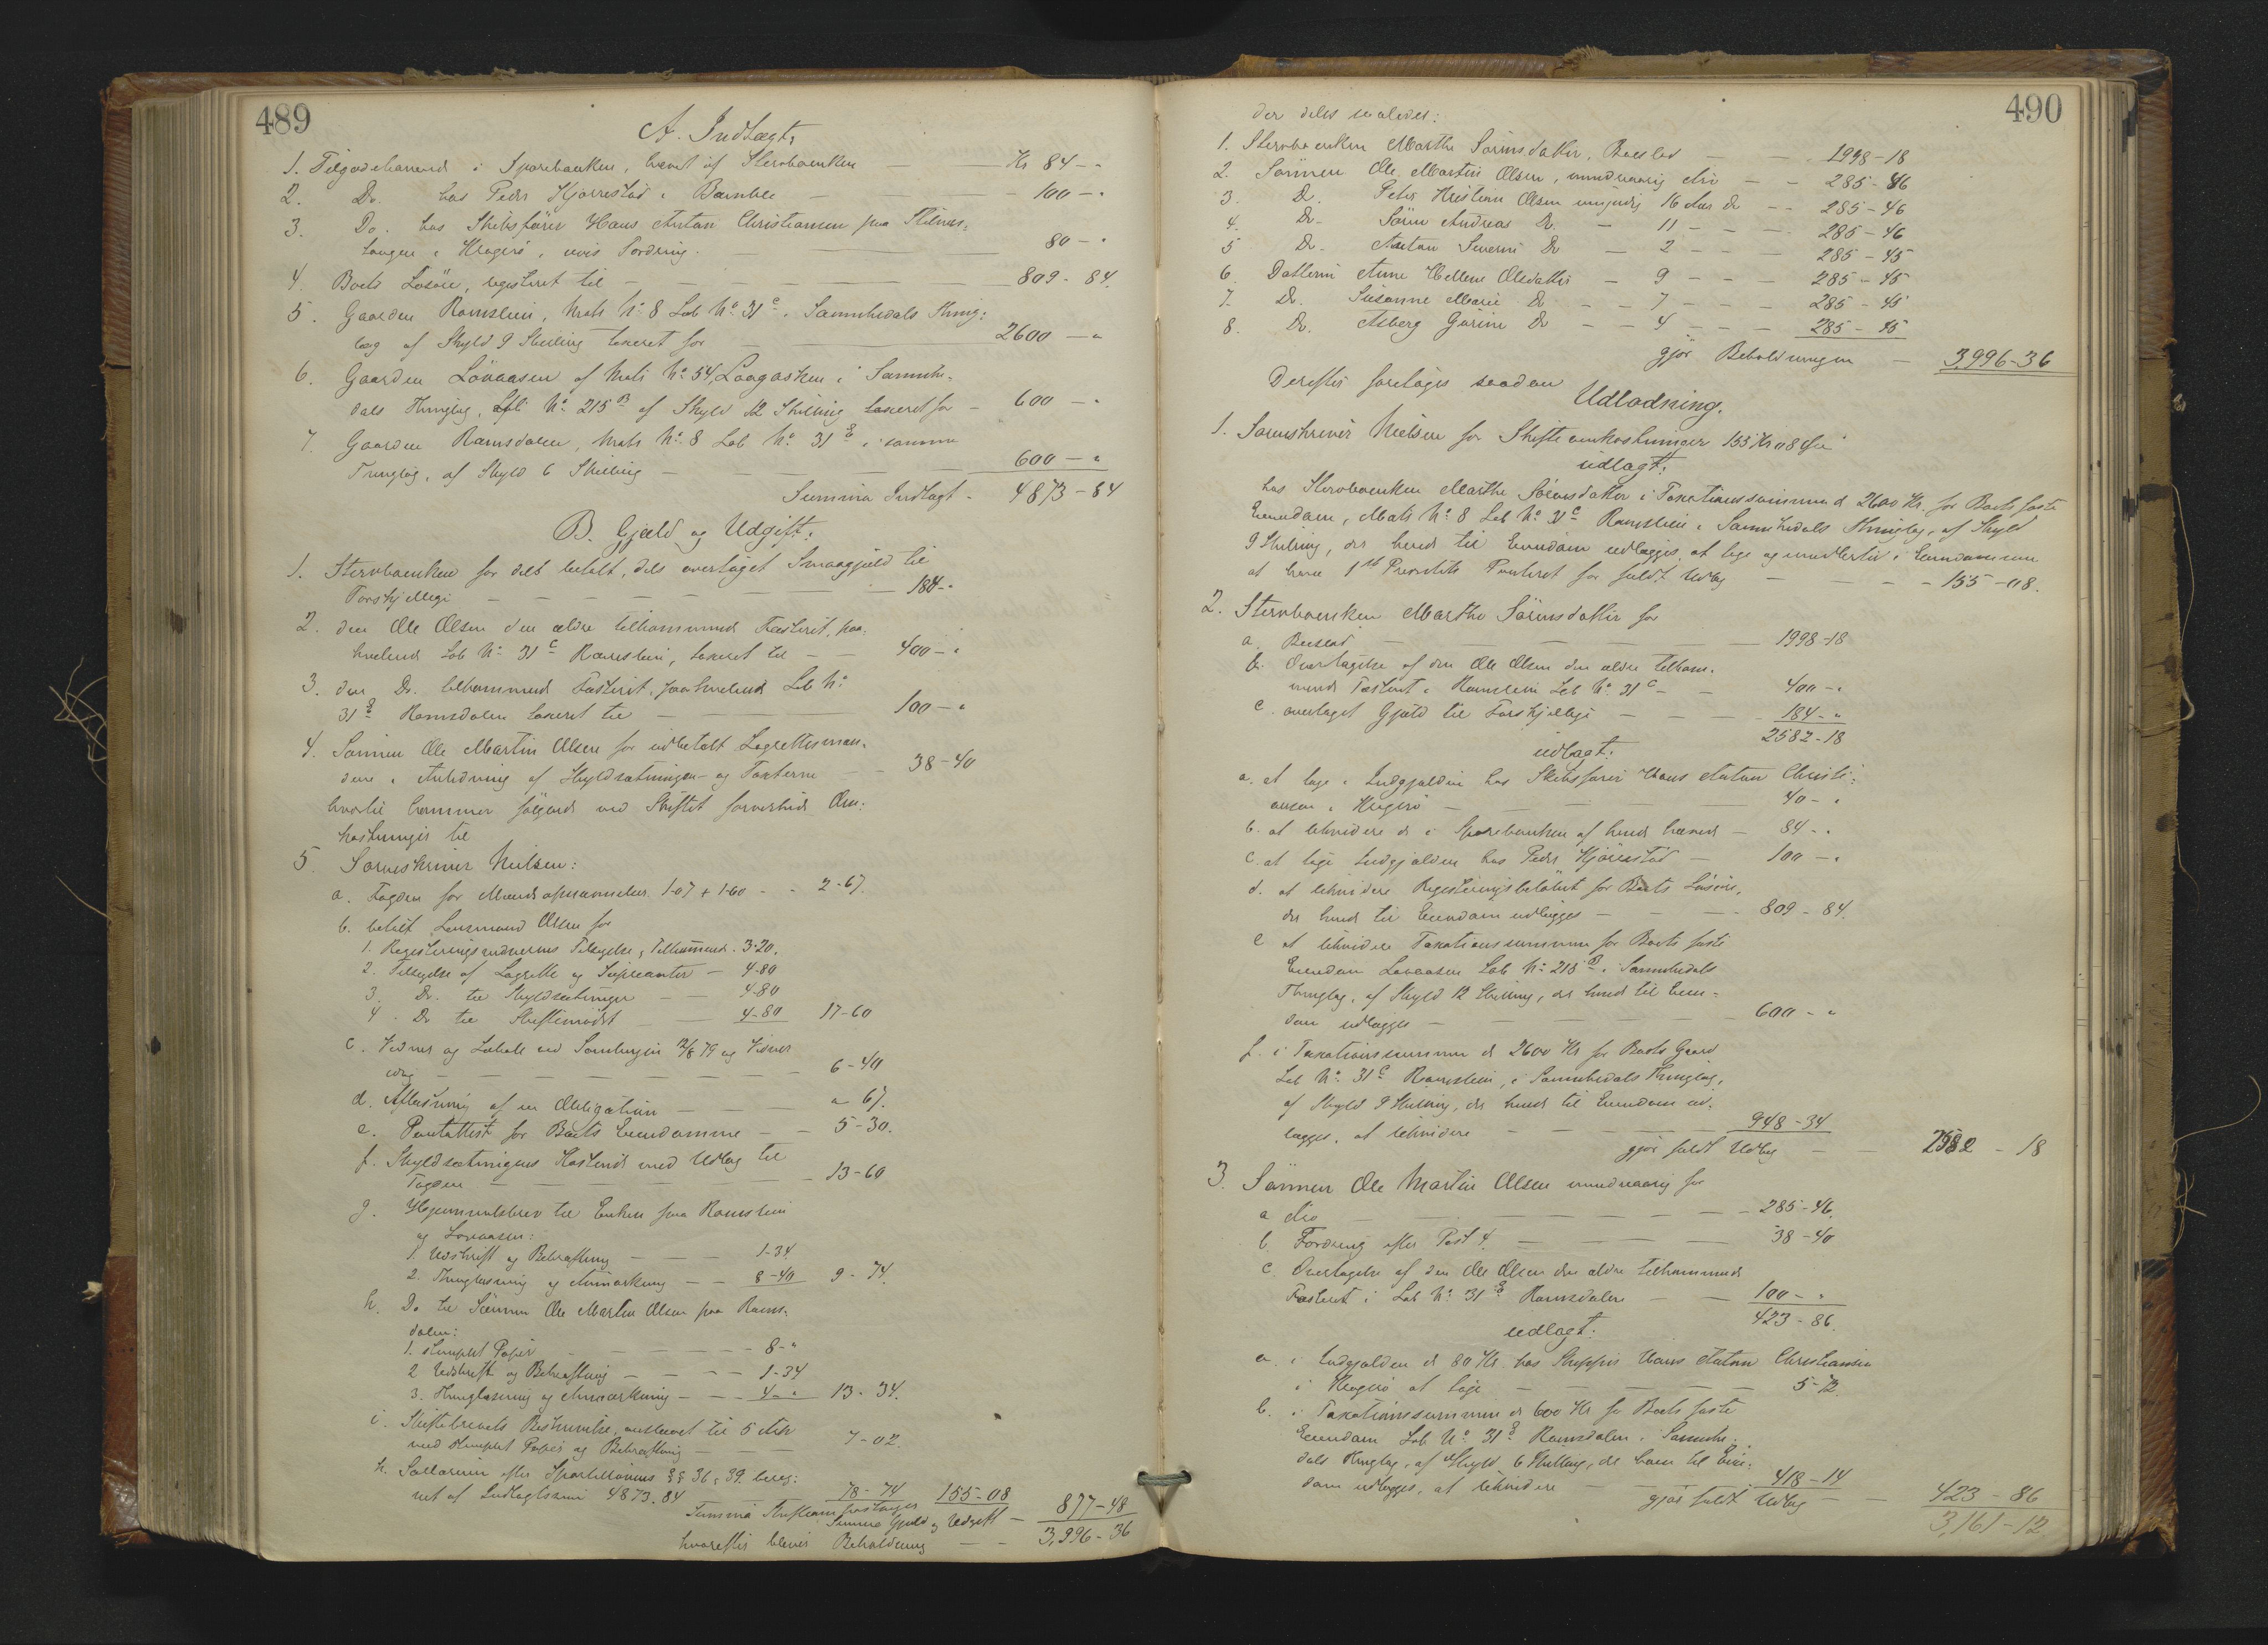 489
A. Indtægt:
1. Tilgodehavende i Sparebanken, hævet af Stervboenken — Kr 84 - "
2. Do. hos Peder Kjørrestad i Bamble — 100 - "
3. Do. hos Skibsfører Hans Anton Christiansen paa
i Kragerø, uvis Fordring. — 80 - "
4. Boets Løsøre, registeret til — 809 - 84.
5. Gaarden Ramslien, Matr. No. 8 Lob. No. 31 c i Sannikedals Thing:
lag af Skyld 9 Skilling taxeret for — 2600 — "
6. Gaarden Løvaasen af Matr. No. 54, i Sannike-
dals Thinglag, No. 215 B af Skyld 12 Skilling taxeret for — 600 — "
7. Gaarden Ramsdalen, Matr. No. 8 Lob. No. 31 E i samme
Thinglag, af Skyld 6 Skilling — 600 — "
Summa Indtægt - 4873 - 84
B. Gjæld og Udgift:
1. Stervboenken for dels betalt, dels overtaget Smaagjæld til
Forskjellige — 184 - "
2. den Ole Olsen den ældre tilkommende Fæsteret, paa-
hvilende Lob. No. 31 c Ramslien, taxeret til — 400 - "
3. den Do. tilkommende Fæsteret, paahvilende Lob. No.
31 E Ramsdalen taxeret til — 100 - "
4. Sønnen Ole Martin Olsen for udbetalt Lagrettesmæn-
dene i Anledning af Skyldsætningen og Taxterne — 38 - 40
hvortil kommer følgende ved Skiftet forvoldte Om-
kostninger til
5. Sorenskriver Nielsen:
a. Fogden for Mandsopnævnelser 1-07 + 1-60 - - 2-67.
b. betalt Lensmand Olsen for
1. Registeringsvidnernes Tilsigelse, Tilkommende. 3-20.
2. Tilsigelse af Lagrette og — 4-80
3. Do. til Skyldsætningen — 4-80
4. Do. til Skiftemødet — 4-80 17-60
c. Vidner og Lokale ved Samlingen 12/8 79 og Vidner
idag — 6-40
d. Aflæsning af en Obligation — " 67.
e. Pantattest for Boets Eiendomme — 5-30.
f. Skyldsætningens Kostende med Udlæg til
Fogden — 13-60
g. Hjemmelsbrev til Enken paa Ramslien
og Løvaasen:
1. Udskrift og Bekræftning — 1-34
2. Thinglæsning og Anmærkning — 8-40 9-74.
h. Do. til Sønnen Ole Martin Olsen paa Rams-
dalen:
1. stemplet Papir — 8-"
2. Udskrift og Bekræftning — 1-34
3. Thinglæsning og Anmærkning — 4-" 13-34.
i. Skiftebrevets Beskrivelse, til 5 Ark
med stemplet Papir og Bekræftning — 7-02.
k. Sallarium efter Sportellovens §§ 36, 39. bereg:
net af Indtægtssum 4873.84 78-74 155-08
Summa Skifteomkostninger
Summa Gjæld og Udgift — 877-48
hvorefter bliver Beholdning — 3,996-36
490
der deles saaledes:
1. Stervboenken Marthe Sørensdatter, Boeslod — 1998-18
2. Sønnen Ole Martin Olsen, myndig Arv — 285-46
3. Do. Peder Kristian Olsen umyndig 16 Aar Do — 285-46
4. Do. Søren Andreas Do. — 11 — 285-46
5 Do. Anton Severin Do — 2 — 285-45
6. Datteren Anne Hellene Olsdatter — 9 — 285-45
7. Do. Susanne Marie Do — 7 — 285-45
8. Do. Asberg Gurine Do — 4 — 285-45
gjør Beholdningen — 3,996-36
Derefter foretages saadan
Udlodning.
1. Sorenskriver Nielsen for Skifteomkostninger 155 Kr 08 Øre
udlagt:
hos Stervboenken Marthe Sørensdatter i Taxationssummen d 2600 Kr. for Boets faste
Eiendom, Matr. No. 8 Lob. No. 31 c Ramslien i Sannikedals Thinglag, af Skyld
9 Skilling, der hende til Eiendom udlægges, at tage og imidlertid i Eiendommen
at have 1ste Prioritets Panteret for fuldt Udlæg — 155-08.
2. Stervboenken Marthe Sørensdatter for
a. Boeslod — 1998-18
b. Overtagelse af den Ole Olsen den ældre tilkom-
mende Fæsteret i Ramslien Lob. No. 31 c — 400 - "
c. overtaget Gjæld til Forskjellige — 184 - "
2582-18
udlagt:
a. at tage i Indgjælden hos Skibsfører Hans Anton Christi:
ansen i Kragerø — 40 - "
b. at likvidere de i Sparebanken af hende hævede — 84 - "
c. at tage Indgjælden hos Peder Kjørrestad — 100 - "
d. at likvidere Registeringsbeløbet for Boets Løsøre,
der hende til Eiendom udlægges — 809-84.
e at likvidere Taxationssummen for Boets faste
Eiendom Løvaasen Lob. No. 215 B i Sannikedals
Thinglag, af Skyld 12 Skilling, der hende til Eien-
dom udlægges — 600 - "
f. i Taxationssummen d 2600 Kr for Boets Gaard
Lob. No. 31 c Ramslien, i Sannikedals Thinglag,
af Skyld 9 Skilling, der hende til Eiendom ud-
lægges, at likvidere — 948-34
gjør fuldt Udlæg — 2582 - 18
3. Sønnen Ole Martin Olsen myndig for
a Arv — 285-46.
b. Fordring efter Post 4. — 38-40
c. Overtagelse af den Ole Olsen den ældre tilkommende
Fæsteret i Lob. No. 31 E Ramsdalen — 100 - "
423-86.
udlagt:
a. i Indgjælden d 80 Kr. hos Skipper Hans Anton Christiansen
i Kragerø at tage — 5-72.
b. i Taxationssummen d 600 Kr for Boets faste
Eiendom Lob. No. 31 E Ramsdalen i Sannike-
dals Thinglag, af Skyld 6 Skilling, der ham til Eien-
dom udlægges, at likvidere — 418-14
gjør fuldt Udlæg — 423-86
3,161-12